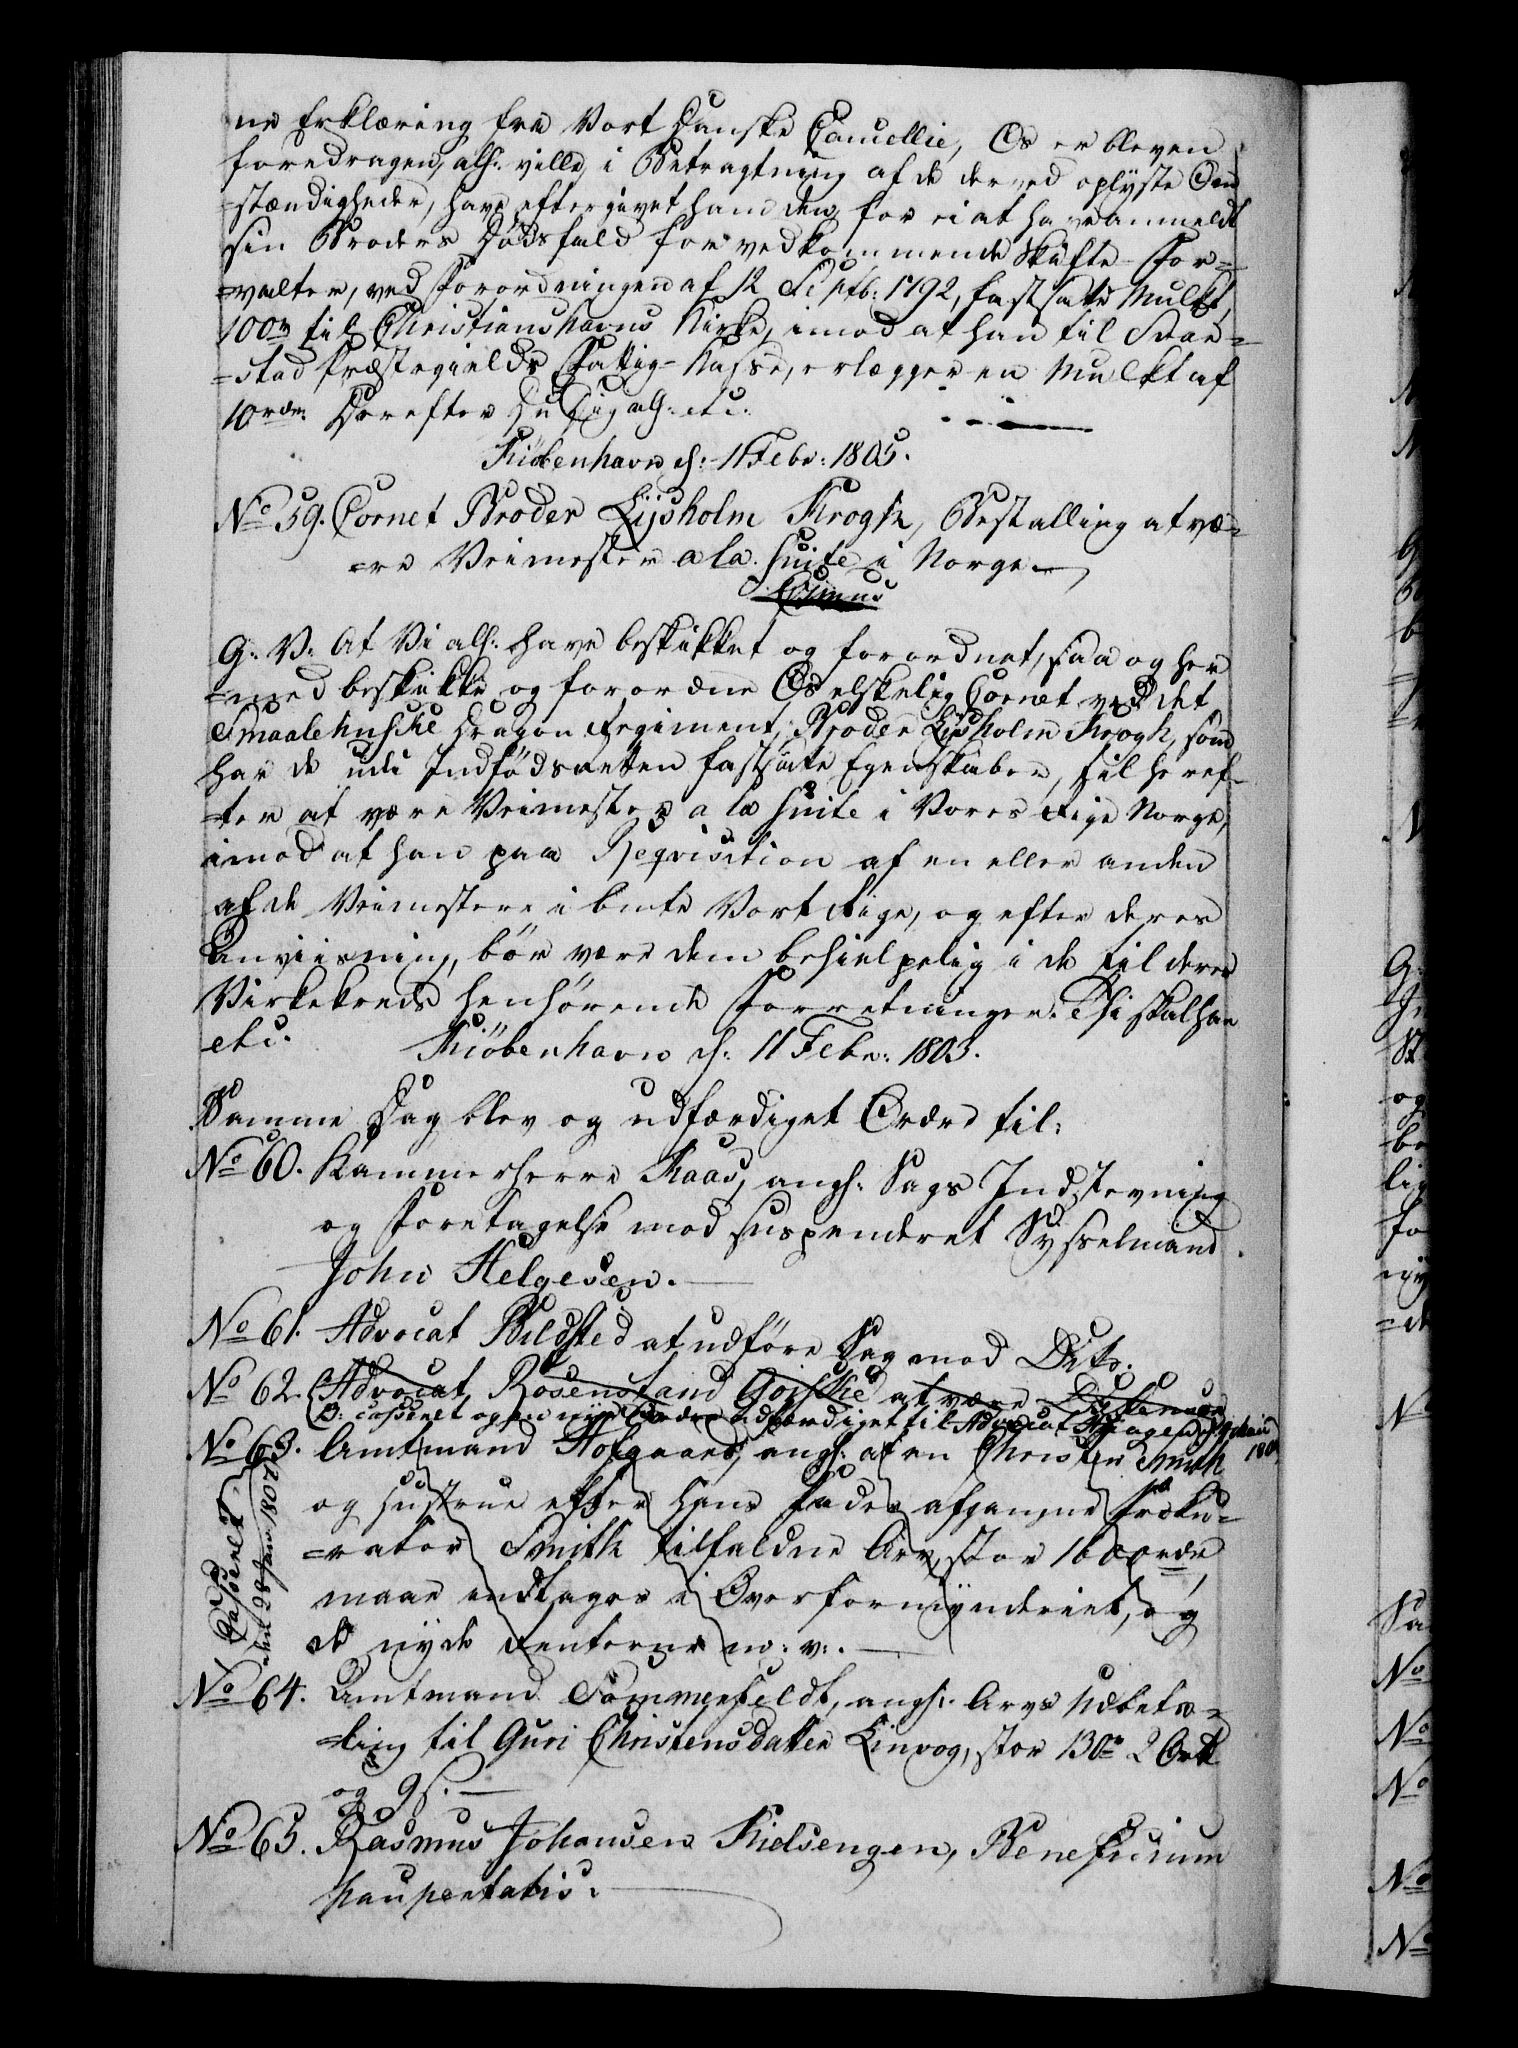 ne Erklæring fra Vort Danske Cancellie, Os er bleven
foredragen, alf: ville, i Betragtning af de derved oplyste Om¬
=stændigheder, have eftergivet ham den, for ei at have anmeldt
sin Broders Dødsfald for vedkommende Skifte-For=
=valter, ved Forordningen af 12 Septb: 1792, fastsatte Mulkt,
100 rd til Christianshavns Kirke, imod at han til
=stad Præstegields Fattig-Kasse, erlægger en Mulkt af
10 rdr. Derefter Du Dig alf: etc:
Kiöbenhavn d: 11 Febr: 1803.
No 59. Cornet Broder Lijsholm Krogh, Bestalling at væ=
=re Veimester a la Suite i Norge.
G: V: At Vi alf: have beskikket og forordnet, saa og her
=med beskikke og forordne Os elskelig Cornet ved det
Smaalehnske Dragon Regiment, Broder Lijsholm Krogh, som
har de udi Indfödsretten fastsatte Egenskaber, til heref=
=ter at være Veimester a la Suite i Vores Rige Norge,
imod at han paa Reqvisition af en eller anden
af de Veimestere i bmte Vort Rige, og efter deres
Anviisning, bör være dem behielpelig i de til deres
Virkekreds henhörende Forretninger. Thi skal han
etc. Kiöbenhavn d: 11 Febr: 1803.
Samme Dag blev og udfærdiget Ordre til:
No 60. Kammerherre Kaas, angh: Sags Indstevning
og Foretagelse mod suspenderet Sysselmand
John Helgesen.
No 61. Advocat Bildsted at udföre Sag mod Dito.
No 62. Advocat Rosenstand Goiske at være Defensor
B: casseret og en nye Ordre udfærdiget til Advocat d: 9
180
No 63. Amtmand Hofgaard, angh: at en Christen Smith
og Hustrue efter hans Fader afgangne Proku=
=rator Smith tilfaldne Arv, stor 1600 rdr,
maae indtages i Overformynderiet, og
de nyde Renterne m: v:.
Casseret
den 28 Jan: 180
No 64. Amtmand Sommerfeldt, angh: Arvs Udbeta=
=ling til Guri Christensdatter Linvog, stor 130 rd 2 Ort
og 9 s.
No 65. Rasmus Johansen Kielsengen, Beneficium
paupertatis.